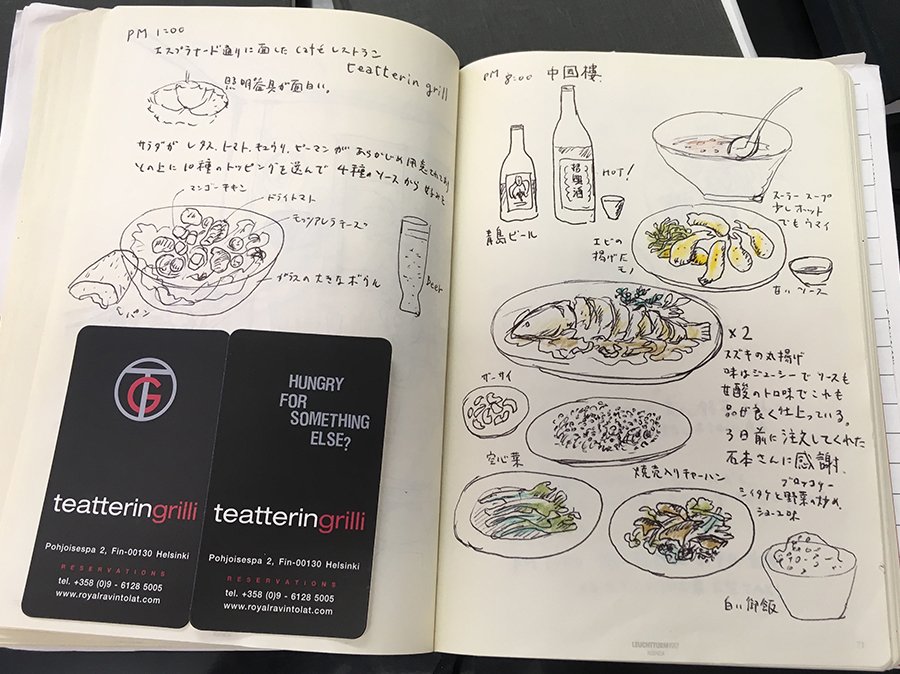 PM 1:00
エスプラナード通りに面した
レストラン
teatterin grill
照明器具が面白い。
サラダがレタス、トマト、キュウリ、ピーマンがあらかじめ用意されており
その上に10種のトッピングを選んで 4種のソースから
マンゴーチキン
ドライトマト
モッツアレラチーズ
ガラスの大きなボウル
パン
beer
TG
teatteringrilli
Pohjoisespa 2, Fin-00130 Helsinki
RESERVATIONS
tel. +358 (0)9 - 6128 5005
www.royalravintolat.com
HUNGRY
FOR
SOMETHING
ELSE?
teatteringrilli
Pohjoisespa 2, Fin-00130 Helsinki
RESERVATIONS
tel. +358 (0)9 - 6128 5005
www.royalravintolat.com
PM 8:00 中国樓
HOT!
青島ビール
スーラースープ
少しホット
でもウマイ
エビの
揚げた
モノ
甘いソース
×2
スズキの丸揚げ
味はジューシーでソースも
甘酸のトロ味でこれも
品が良く仕上っている。
3日前に注文してくれた
石本さんに感謝、
ザーサイ
空心菜
焼売入りチャーハン
ブロッコリー
シイタケと野菜の炒め
白い御飯
LEUCHTTURM1917